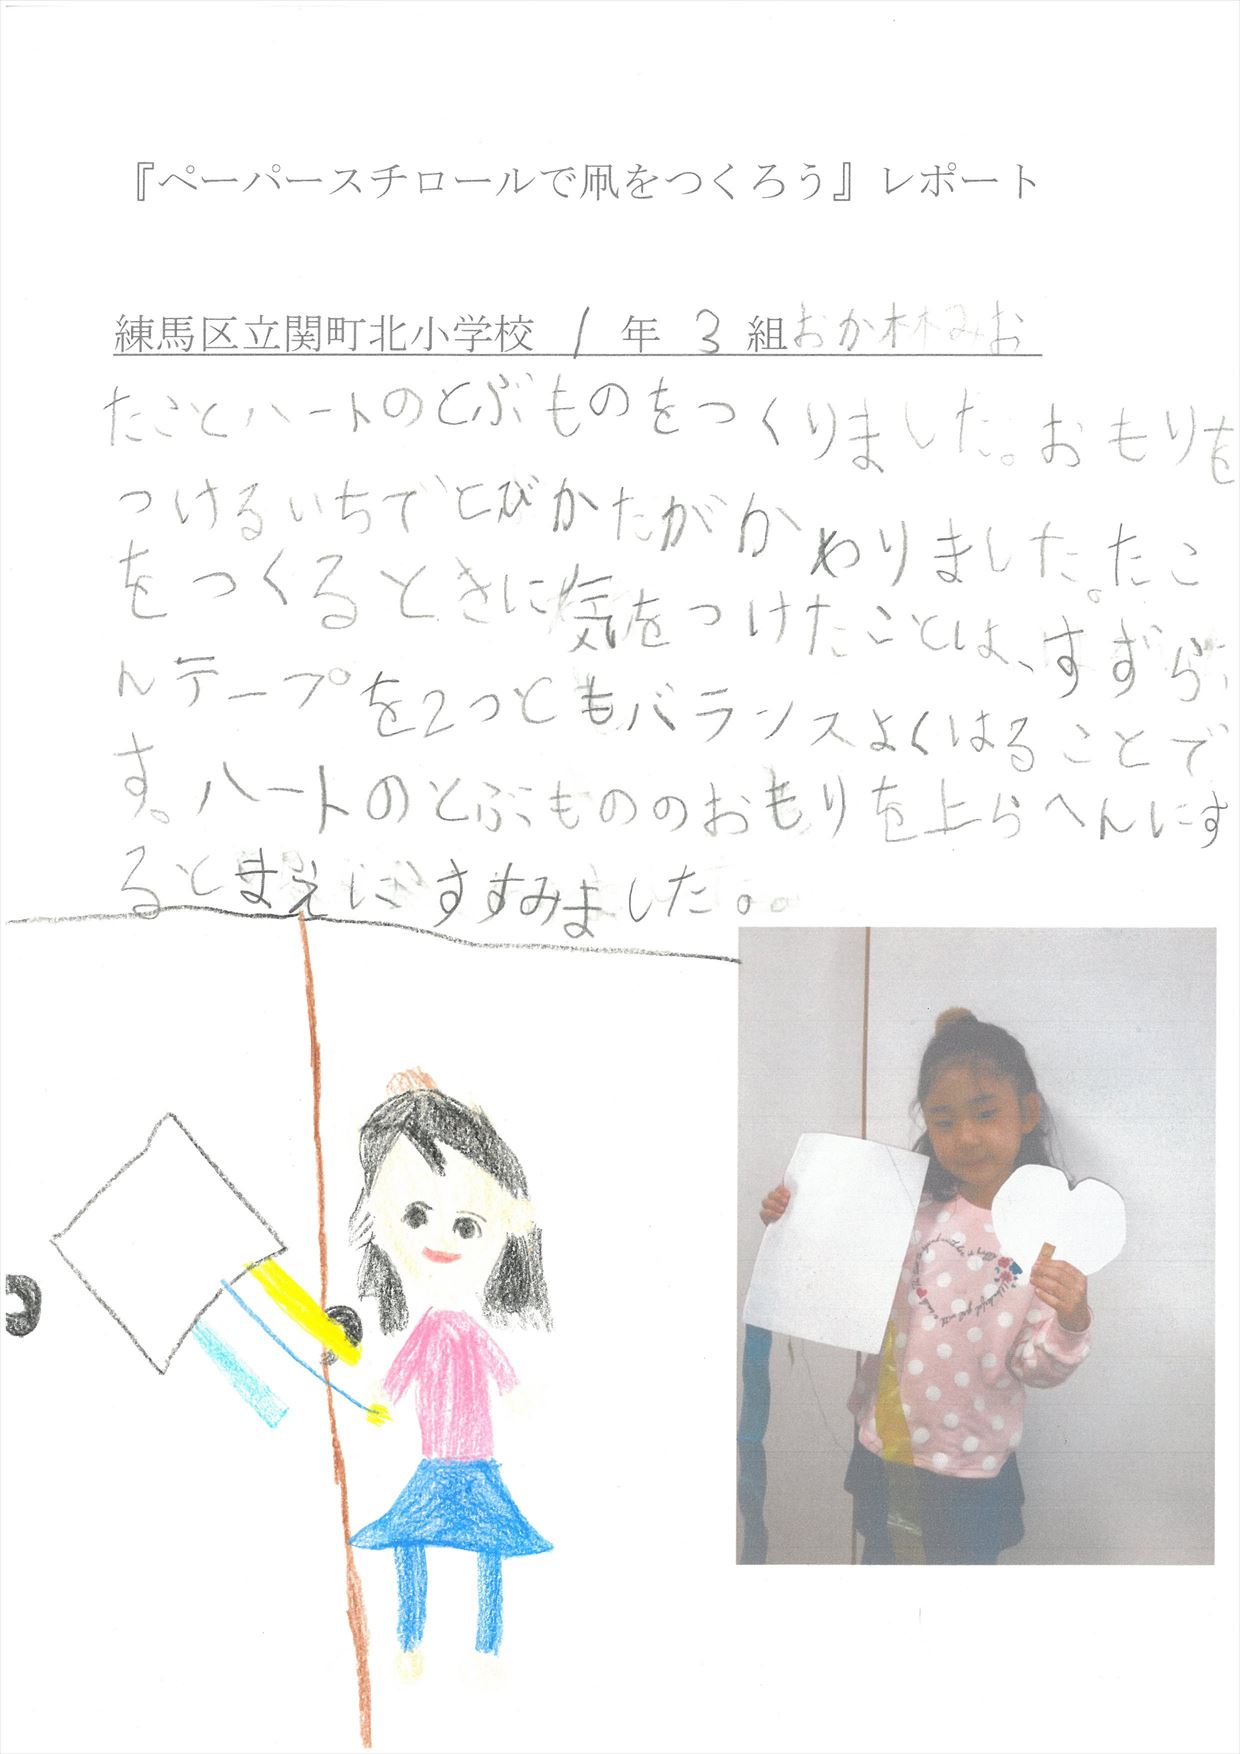 『ペーパースチロールで凧をつくろう』レポート
練馬区立関町北小学校 1 年 3 組おか林みお
たことハートのとぶものをつくりました。おもりを
つけるいちでとびかたがかわりました。たこ
をつくるときに気をつけたことは、すずら
んテープを2つともバランスよくはることで
す。ハートのとぶもののおもりを上らへんにす
るとまえにすすみました。